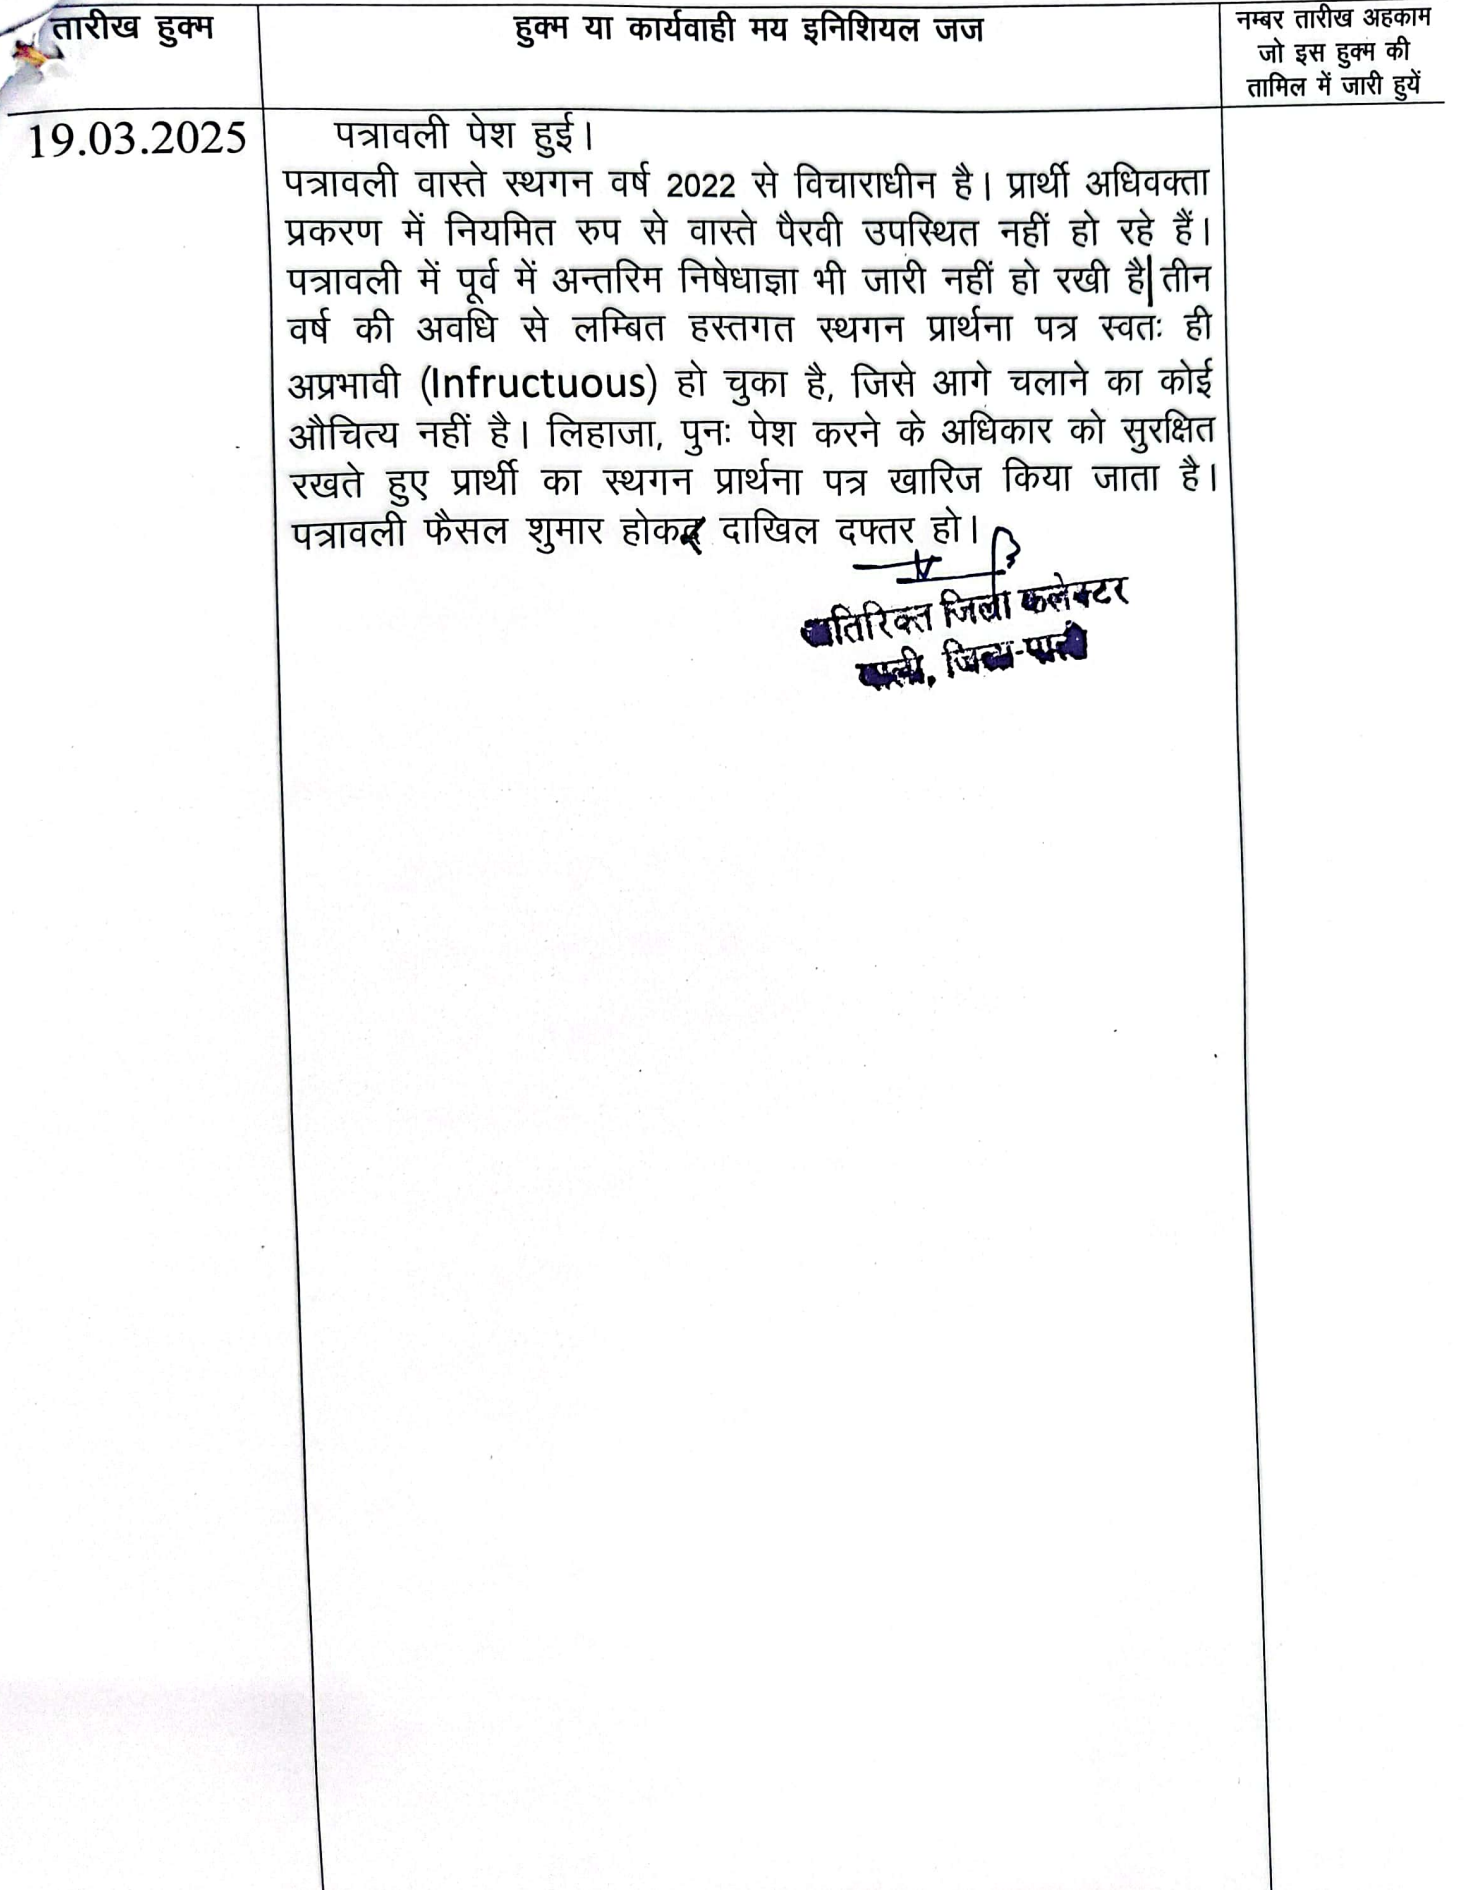 तारीख हुक्म
हुक्म या कार्यवाही मय इनिशियल जज
नम्बर तारीख अहकाम
जो इस हुक्म की
तामिल में जारी हुयें
19.03.2025
पत्रावली पेश हुई।
पत्रावली वास्ते स्थगन वर्ष 2022 से विचाराधीन है। प्रार्थी अधिवक्ता
प्रकरण में नियमित रुप से वास्ते पैरवी उपस्थित नहीं हो रहे हैं।
पत्रावली में पूर्व में अन्तरिम निषेधाज्ञा भी जारी नहीं हो रखी है|तीन
वर्ष की अवधि से लम्बित हस्तगत स्थगन प्रार्थना पत्र स्वतः ही
अप्रभावी (Infructuous) हो चुका है, जिसे आगे चलाने का कोई
औचित्य नहीं है। लिहाजा, पुनः पेश करने के अधिकार को सुरक्षित
रखते हुए प्रार्थी का स्थगन प्रार्थना पत्र खारिज किया जाता है।
पत्रावली फैसल शुमार होकर दाखिल दफ्तर हो।
अतिरिक्त जिला कलेक्टर
पाली, जिला-पाली